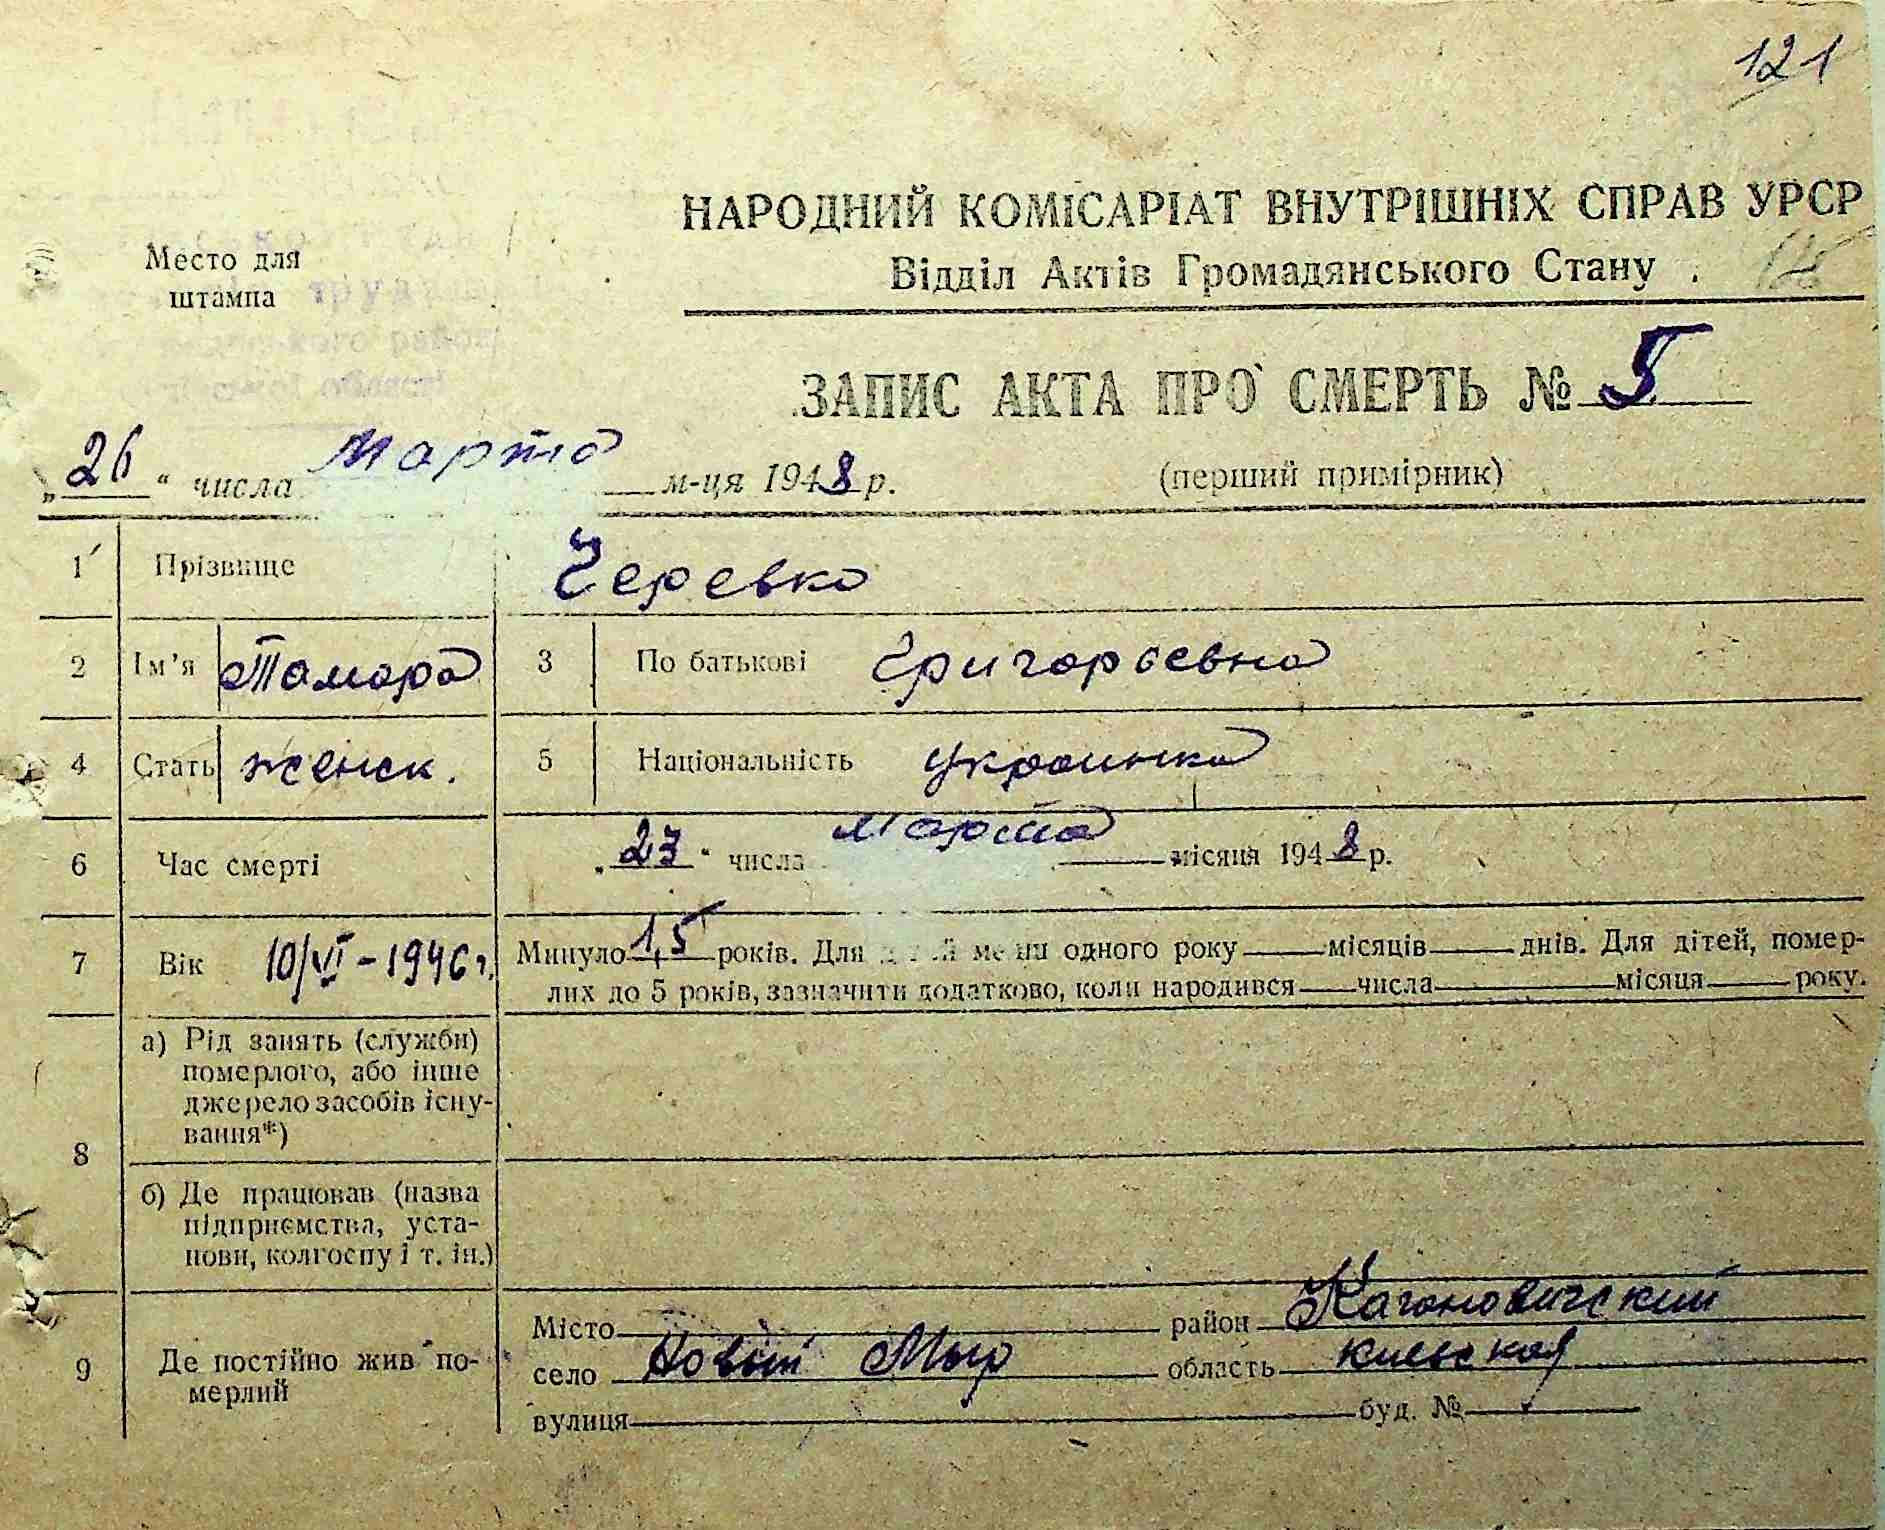 121
НАРОДНИЙ КОМІСАРІАТ ВНУТРІШНІХ СПРАВ УРСР
Место для
штампа
Відділ Актів Громадянського Стану
ЗАПИС АКТА ПРО СМЕРТЬ № 5
„26“ числа Марта м-ця 1948 р. (перший примірник)
1 Прізвище Черевко
2 Ім'я Тамара 3 По батькові Григорьевна
4 Стать женск. 5 Національність украинка
6 Час смерті „23“ числа марта місяця 1948 р.
7 Вік 10/VI-1946 г. Минуло 1,5 років. Для дітей менш одного року місяців днів. Для дітей, помер-
лих до 5 років, зазначити додатково, коли народився числа місяця року.
8 а) Рід занять (служби)
померлого, або інше
джерело засобів існу-
вання*)
б) Де працював (назва
підприємства, уста-
нови, колгоспу і т. ін.)
9 Де постійно жив по-
мерлий
Місто район Кагановичский
село Новый Мыр область киевская
вулиця буд. №